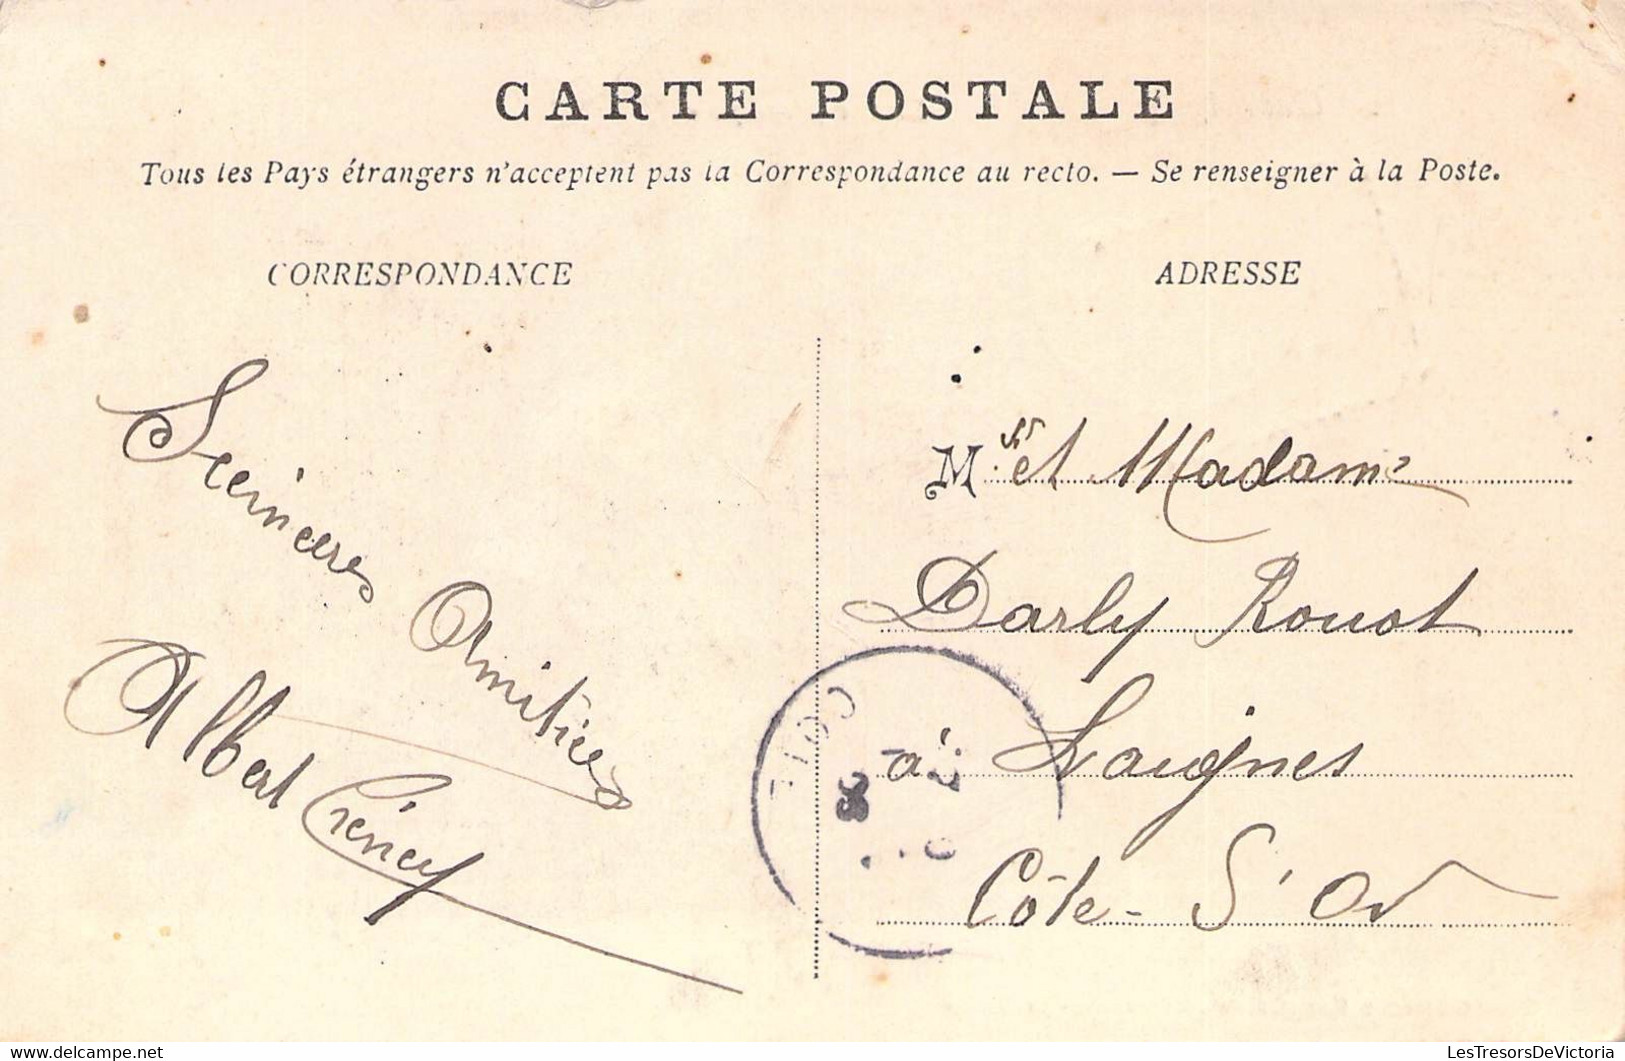 CARTE POSTALE
Tous les Pays étrangers n'acceptent pas la Correspondance au recto. — Se renseigner à la Poste.
CORRESPONDANCE
ADRESSE
Sincères
Amitiés
Albert
Mr et Madame
Darly Rouot
à Laignes
Côte-d'Or
COTE
www.lestresorsdevictoria.com
LesTresorsDeVictoria